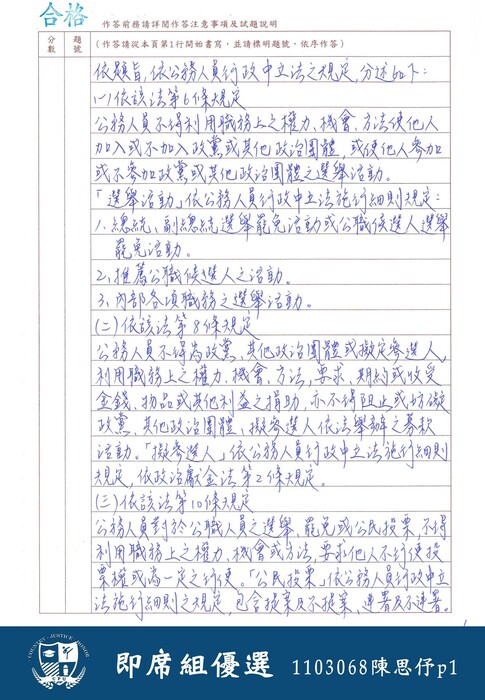 合格
作答前務請詳閱作答注意事項及試題說明
分數
題號
（作答請從本頁第1行開始書寫，並請標明題號，依序作答）
依題旨，依公務人員行政中立法之規定，分述如下：
(一)依該法第6條規定
公務人員不得利用職務上之權力、機會、方法使他人
加入或不加入政黨或其他政治團體，或使他人參加
或不參加政黨或其他政治團體之選舉活動。
「選舉活動」依公務人員行政中立法施行細則規定：
1、總統、副總統選舉罷免活動或公職候選人選舉
罷免活動。
2、推薦公職候選人之活動。
3、內部各項職務之選舉活動。
(二)依該法第8條規定
公務人員不得為政黨、其他政治團體或擬定參選人，
利用職務上之權力、機會、方法，要求、期約或收受
金錢、物品或其他利益之捐助，亦不得阻止或妨礙
政黨、其他政治團體、擬參選人依法舉辦之募款
活動。「擬參選人」依公務人員行政中立法施行細則
規定，依政治獻金法第2條規定。
(三)依該法第10條規定
公務人員對於公職人員之選舉、罷免或公民投票，不得
利用職務上之權力、機會或方法，要求他人不行使投
票權或為一定之行使。「公民投票」依公務人員行政中立
法施行細則之規定，包含提案及不提案、連署及不連署。
COUNTRY JUSTICE HONOR
即席組優選 1103068陳思伃p1